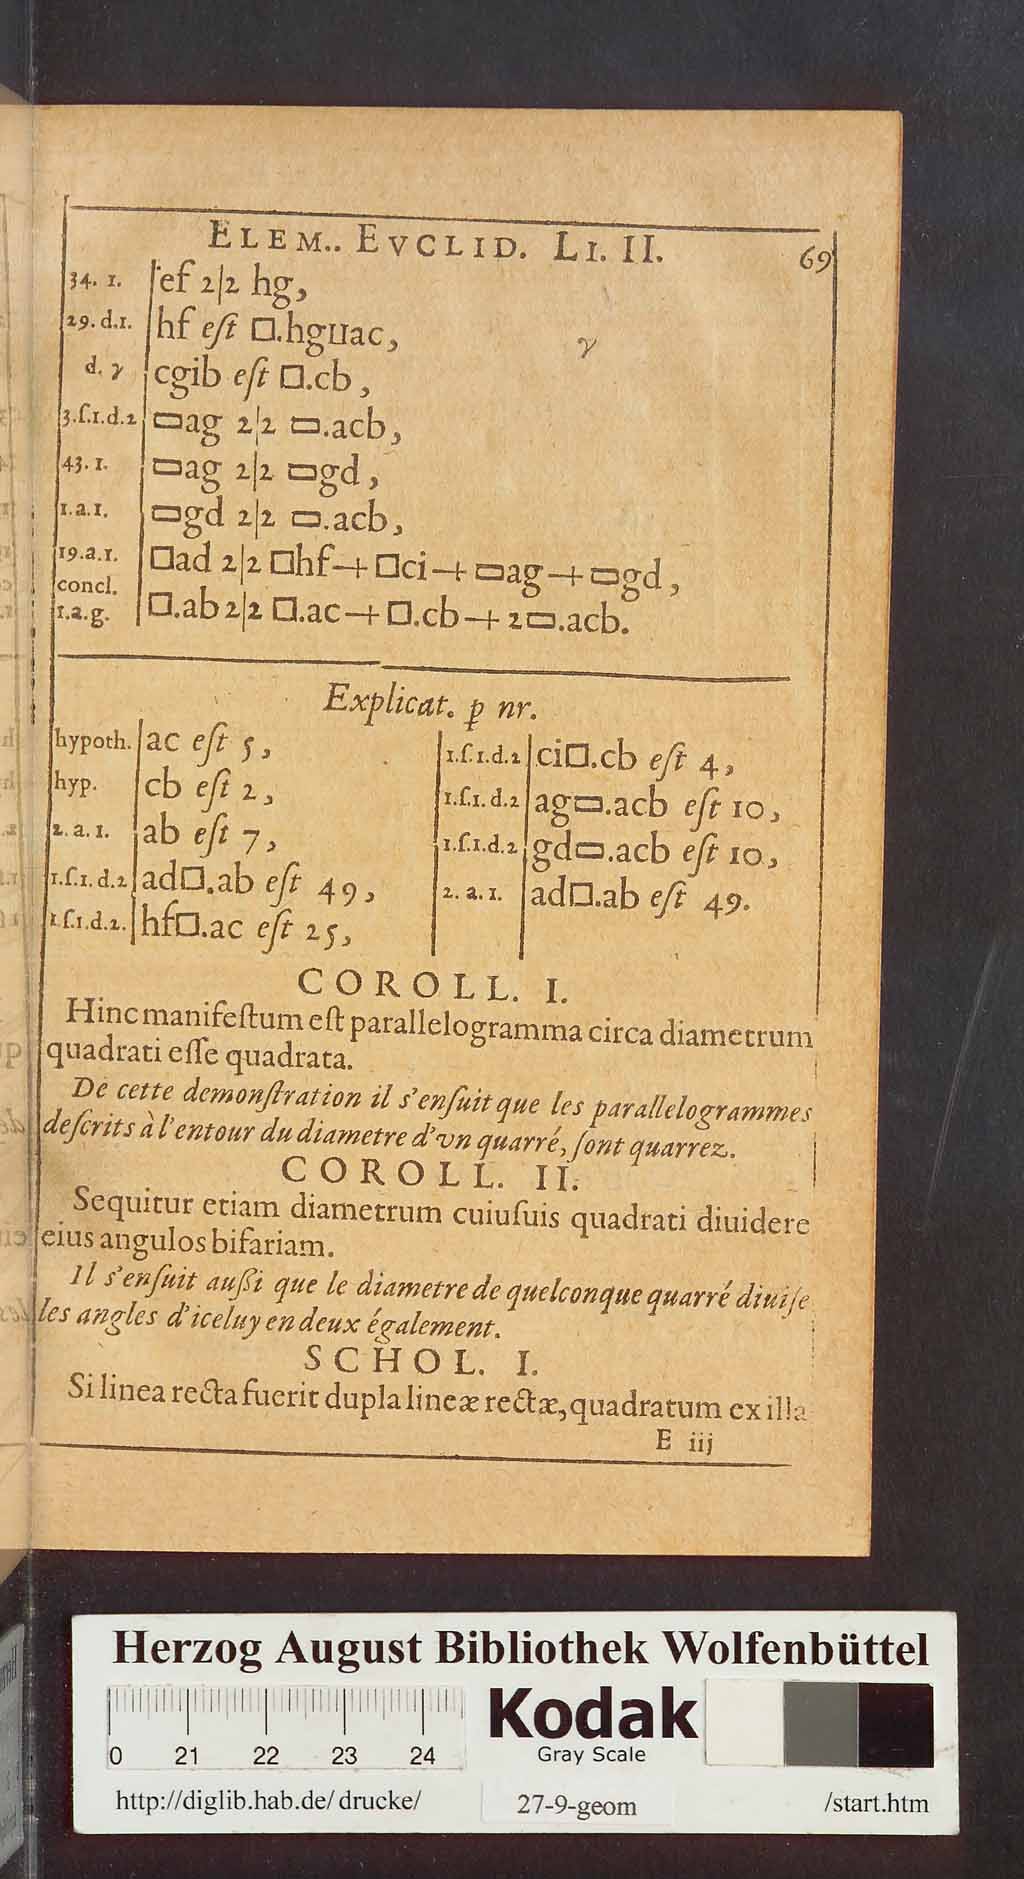 ELEM.. EVCLID. LI. II. 69
34. 1. ef 2|2 hg,
29. d.1. hf eſt □.hgııac, γ
d. γ cgib eſt □.cb,
3.ſ.1.d.2 ▭ag 2|2 ▭.acb,
43. 1. ▭ag 2|2 ▭gd,
1.a.1. ▭gd 2|2 ▭.acb,
19.a.1. □ad 2|2 □hf+□ci+▭ag+▭gd,
concl.
1.a.g. □.ab 2|2 □.ac+□.cb+2▭.acb.
Explicat. p nr.
hypoth. ac eſt 5,
hyp. cb eſt 2,
2. a. 1. ab eſt 7,
1.ſ.1. d.2 ad□.ab eſt 49,
1.ſ.1.d.2. hf□.ac eſt 25,
1.ſ.1.d.2 ci□.cb eſt 4,
1.ſ.1.d.2 ag▭.acb eſt 10,
1.ſ.1.d.2 gd▭.acb eſt 10,
2. a. 1. ad□.ab eſt 49.
COROLL. I.
Hinc manifeſtum eſt parallelogramma circa diametrum
quadrati eſſe quadrata.
De cette demonſtration il s'enſuit que les parallelogrammes
deſcrits à l'entour du diametre d'vn quarré, ſont quarrez.
COROLL. II.
Sequitur etiam diametrum cuiuſuis quadrati diuidere
eius angulos bifariam.
Il s'enſuit außi que le diametre de quelconque quarré diuiſe
les angles d'iceluy en deux également.
SCHOL. I.
Si linea recta fuerit dupla lineæ rectæ, quadratum ex illa
E iij
Herzog August Bibliothek Wolfenbüttel
Kodak
Gray Scale
0 21 22 23 24
http://diglib.hab.de/drucke/ 27-9-geom /start.htm